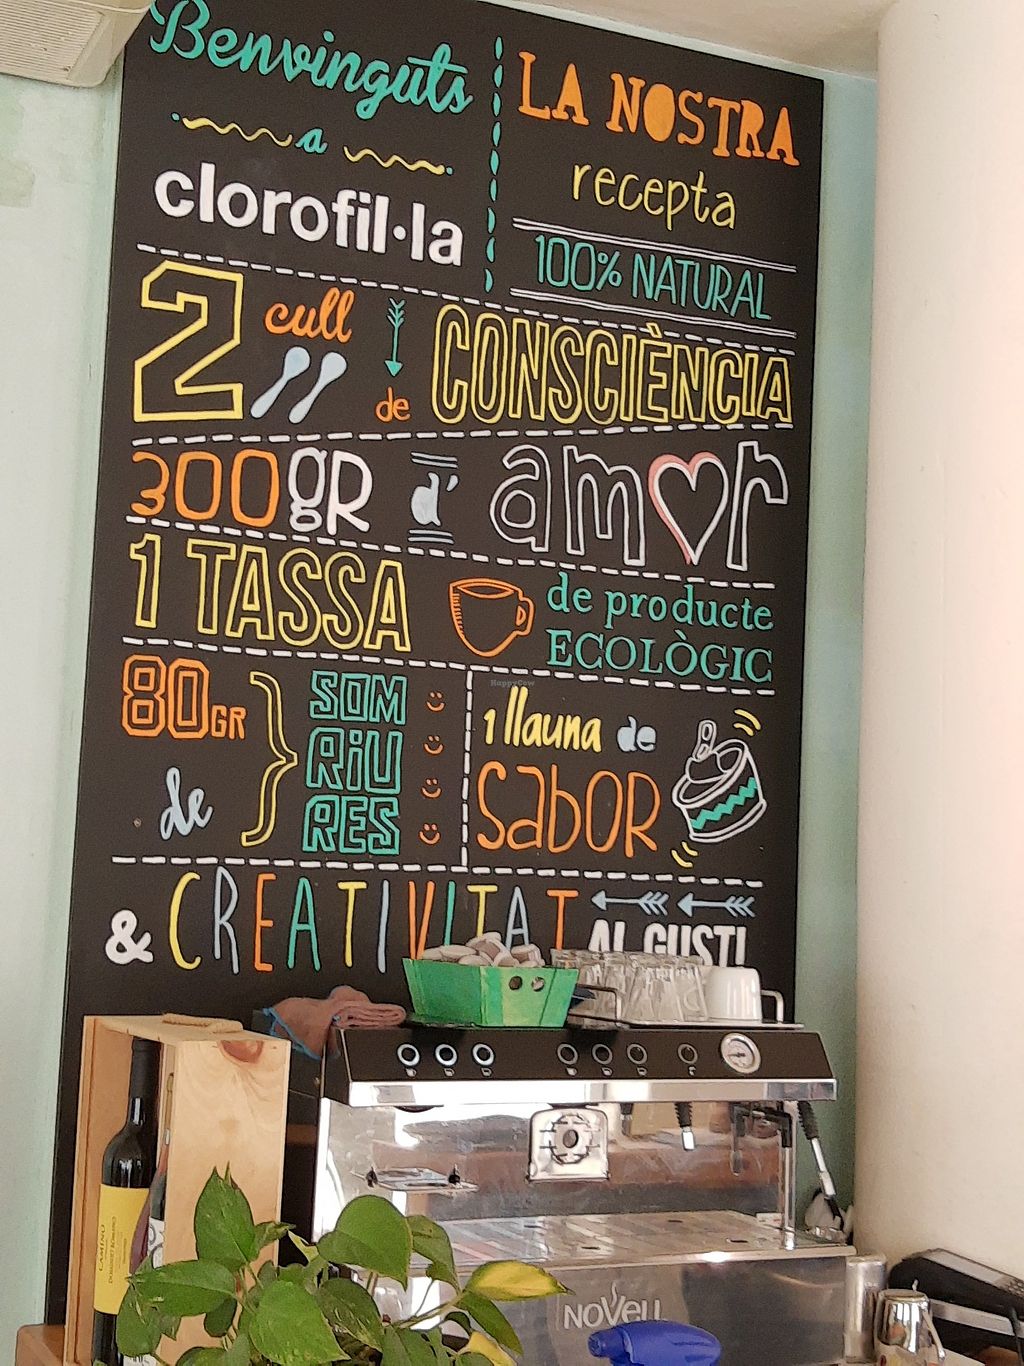 Benvinguts
a
clorofil·la
LA NOSTRA
recepta
100% NATURAL
2 cull de CONSCIÈNCIA
300gR d' amor
1 TASSA de producte
ECOLÒGIC
80GR
de
SOM
RiU
RES
1 llauna de
SabOR
& CREATIVITAT AL GUST!
HappyCow
CAMINO
NoVeLL